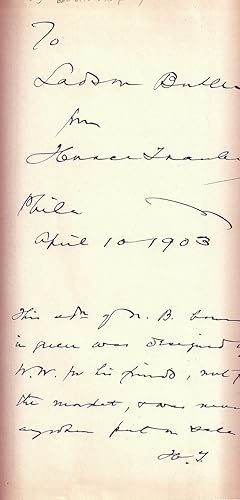 To
Ladson Butler
from
Horace Traubel
Phila
April 10 1903
This edn of N. B. bound
in green was designed
W.W. for his friends, not for
the market, & was never
anywhere put on sale
H. T.